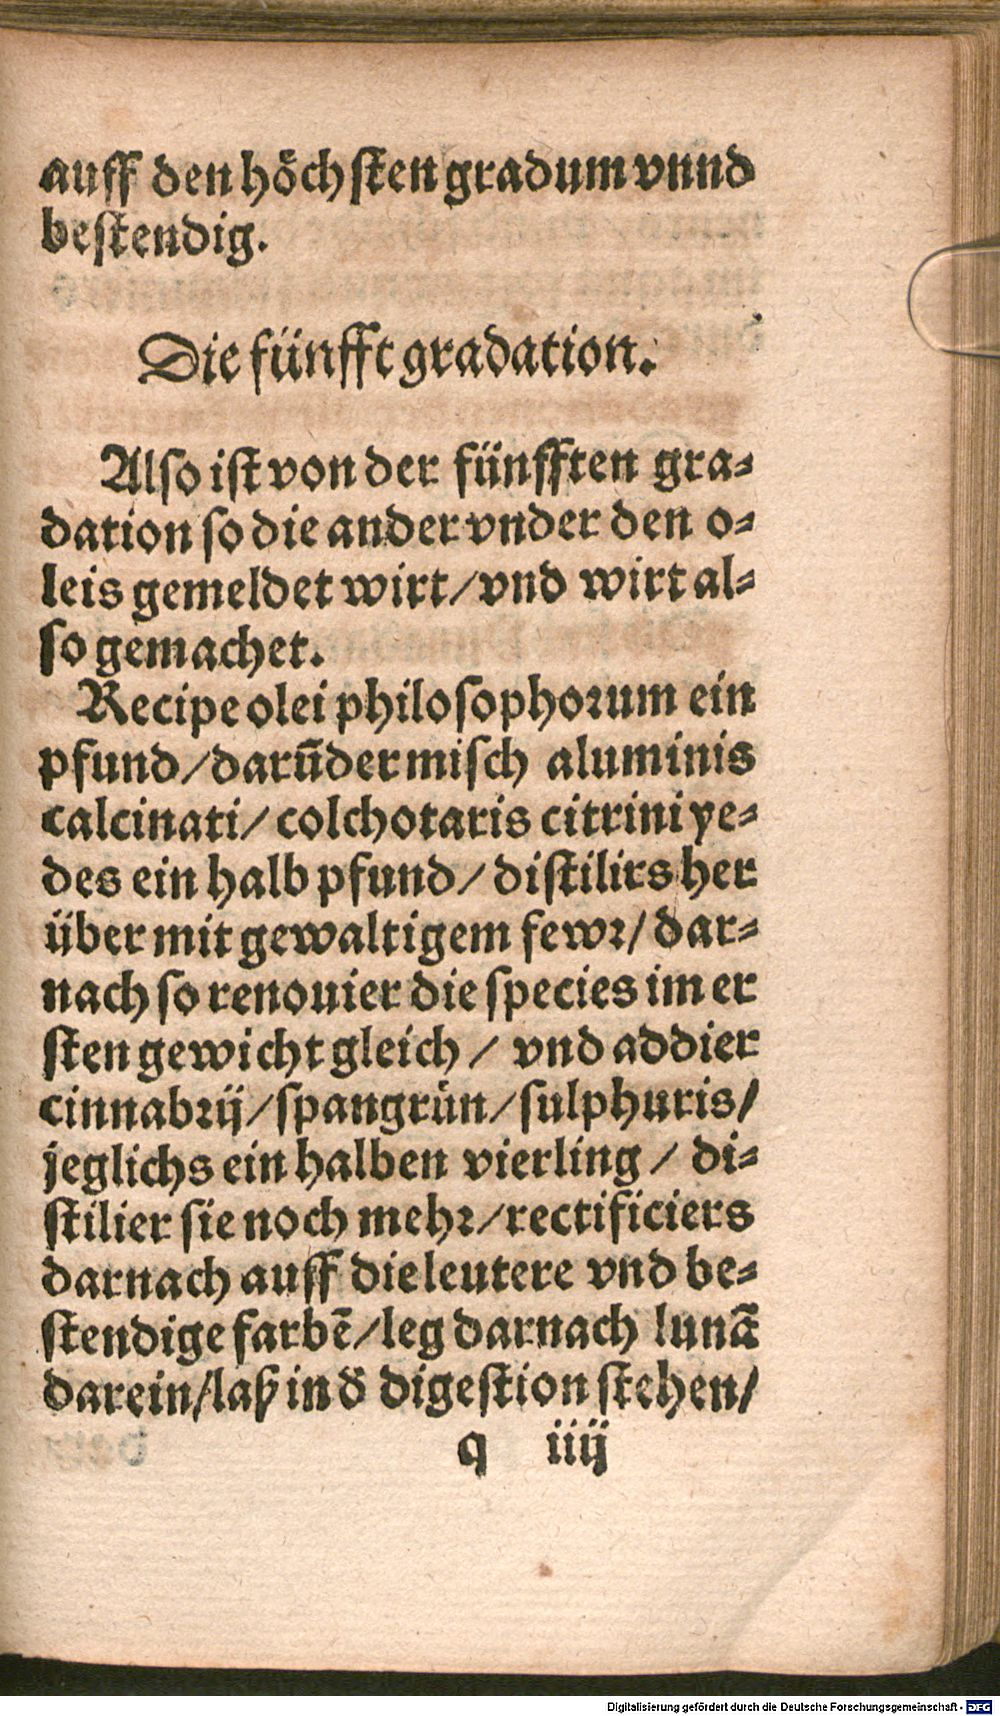 auff den höchsten gradum vnnd
bestendig.
Die fünfft gradation.
Also ist von der fünfften gra⸗
dation so die ander vnder den o⸗
leis gemeldet wirt/vnd wirt al⸗
so gemachet.
Recipe olei philosophorum ein
pfund/darūder misch aluminis
calcinati/ colchotaris citrini ye⸗
des ein halb pfund/ distilirs her
über mit gewaltigem fewr/ dar⸗
nach so renouier die species im er
sten gewicht gleich/ vnd addier
cinnabrij/spangrün/sulphuris/
jeglichs ein halben vierling/ di⸗
stilier sie noch mehr/rectificiers
darnach auff die leutere vnd be⸗
stendige farbē/leg darnach lunā
darein/laß in d̄ digestion stehen/
q iiij
Digitalisierung gefördert durch die Deutsche Forschungsgemeinschaft - DFG